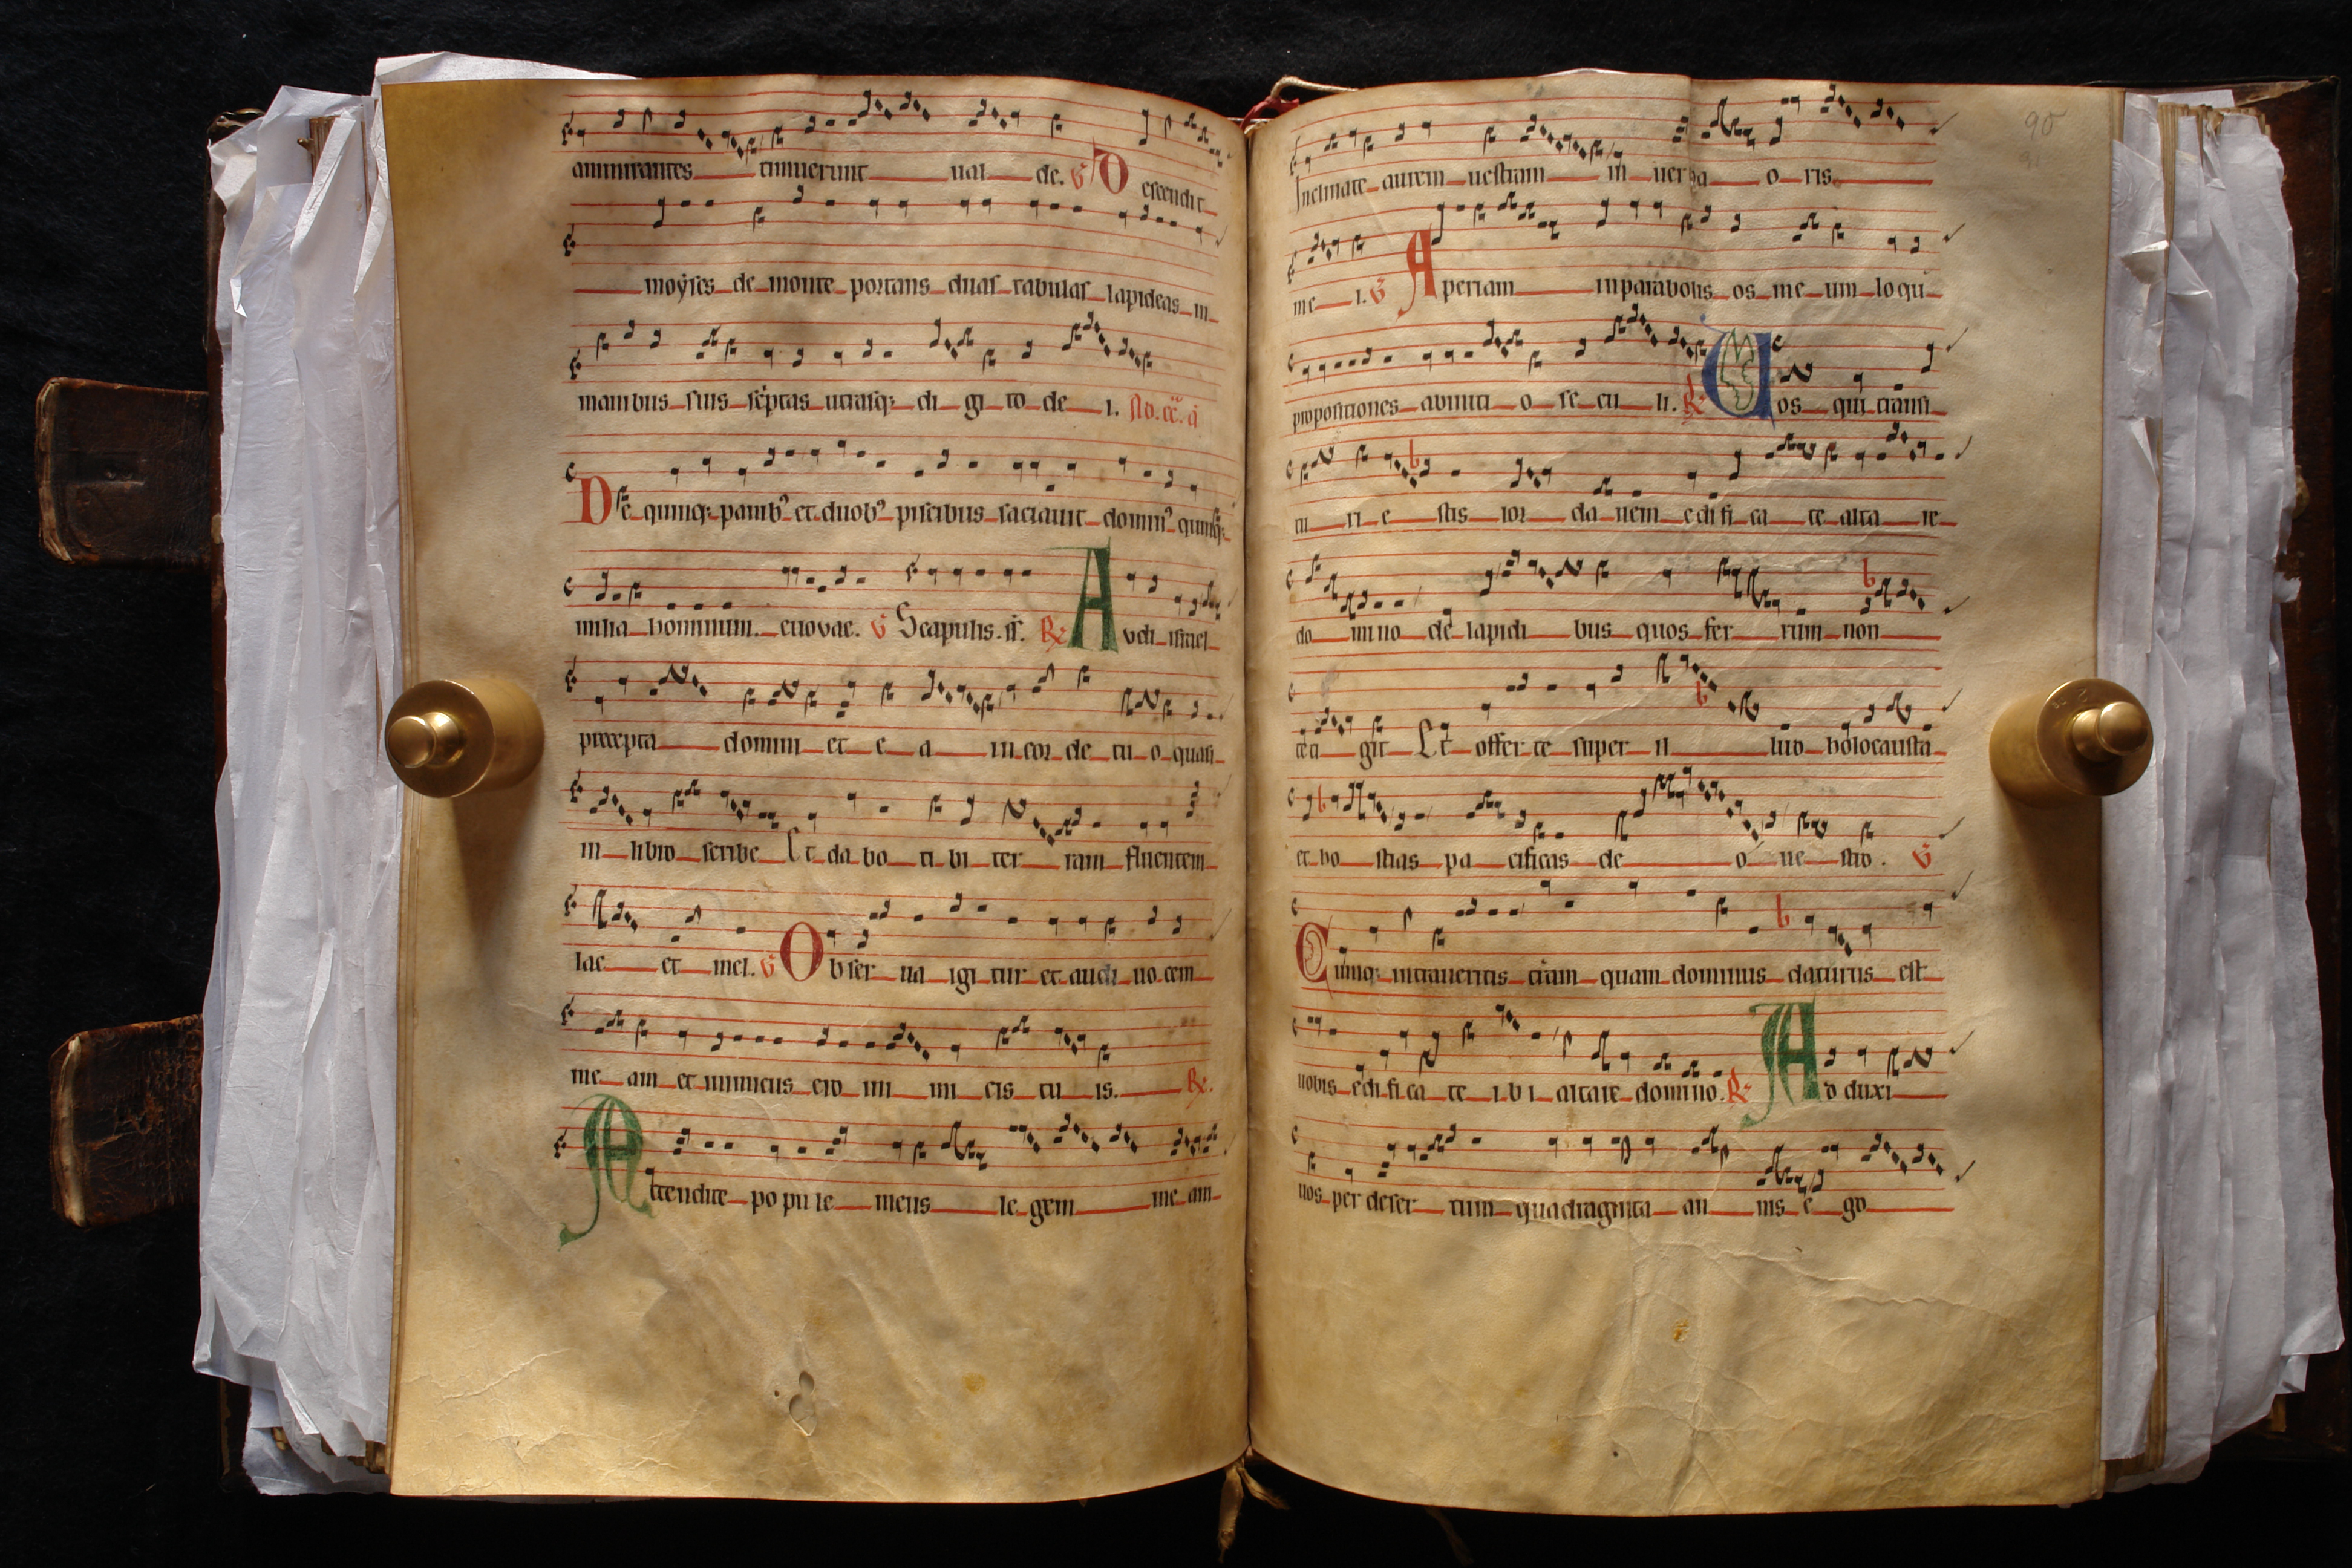 ammirantes timuerunt ual de. V Descendit
moẏses de monte portans duas tabulas lapideas in
manibus suis scͥptas utrasq; di gi to de i.
De quinq; panibꝰ et duobꝰ piscibus saciauit dominꝰ quinq;
milia hominum. euovae. V Scapulis. R Avdi israel
precepta domini et e a in cor de tu o quasi
in libro scribe Et da bo ti bi ter ram fluentem
lac et mel. V Obser ua igi tur et audi uo cem
me am et inimicus ero ini mi cis tu is. R.
Attendite po pu le meus le gem me am
90
Inclinate aurem uestram in uerba o ris
me i. V Aperiam in parabolis os me um loqui
propositiones ab initi o se cu li. R Uos qui transi
tu ri e stis ior da nem edi fi ca te alta re
do mino de lapidi bus quos fer rum non
teti git Et offer te super il lud holocausta
et ho stias pa cificas de o ue stro. V
Cumq; intraueritis terͣam quam dominus daturus est
uobis edi fi ca te i b i altare domino. R Ad duxi
uos per deser tum quadraginta an nis e go